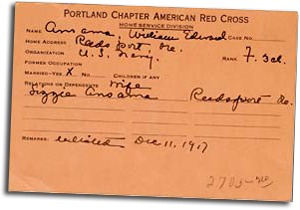 PORTLAND CHAPTER AMERICAN RED CROSS
HOME SERVICE DIVISION
NAME Ansama, William Edward CASE NO.
HOME ADDRESS Reedsport, Ore.
ORGANIZATION U.S. Navy RANK F. 3cl.
FORMER OCCUPATION
MARRIED—YES X NO CHILDREN IF ANY
RELATIONS OR DEPENDENTS Wife
Lizzie Ansama Reedsport Or.
REMARKS: enlisted Dec 11, 1917